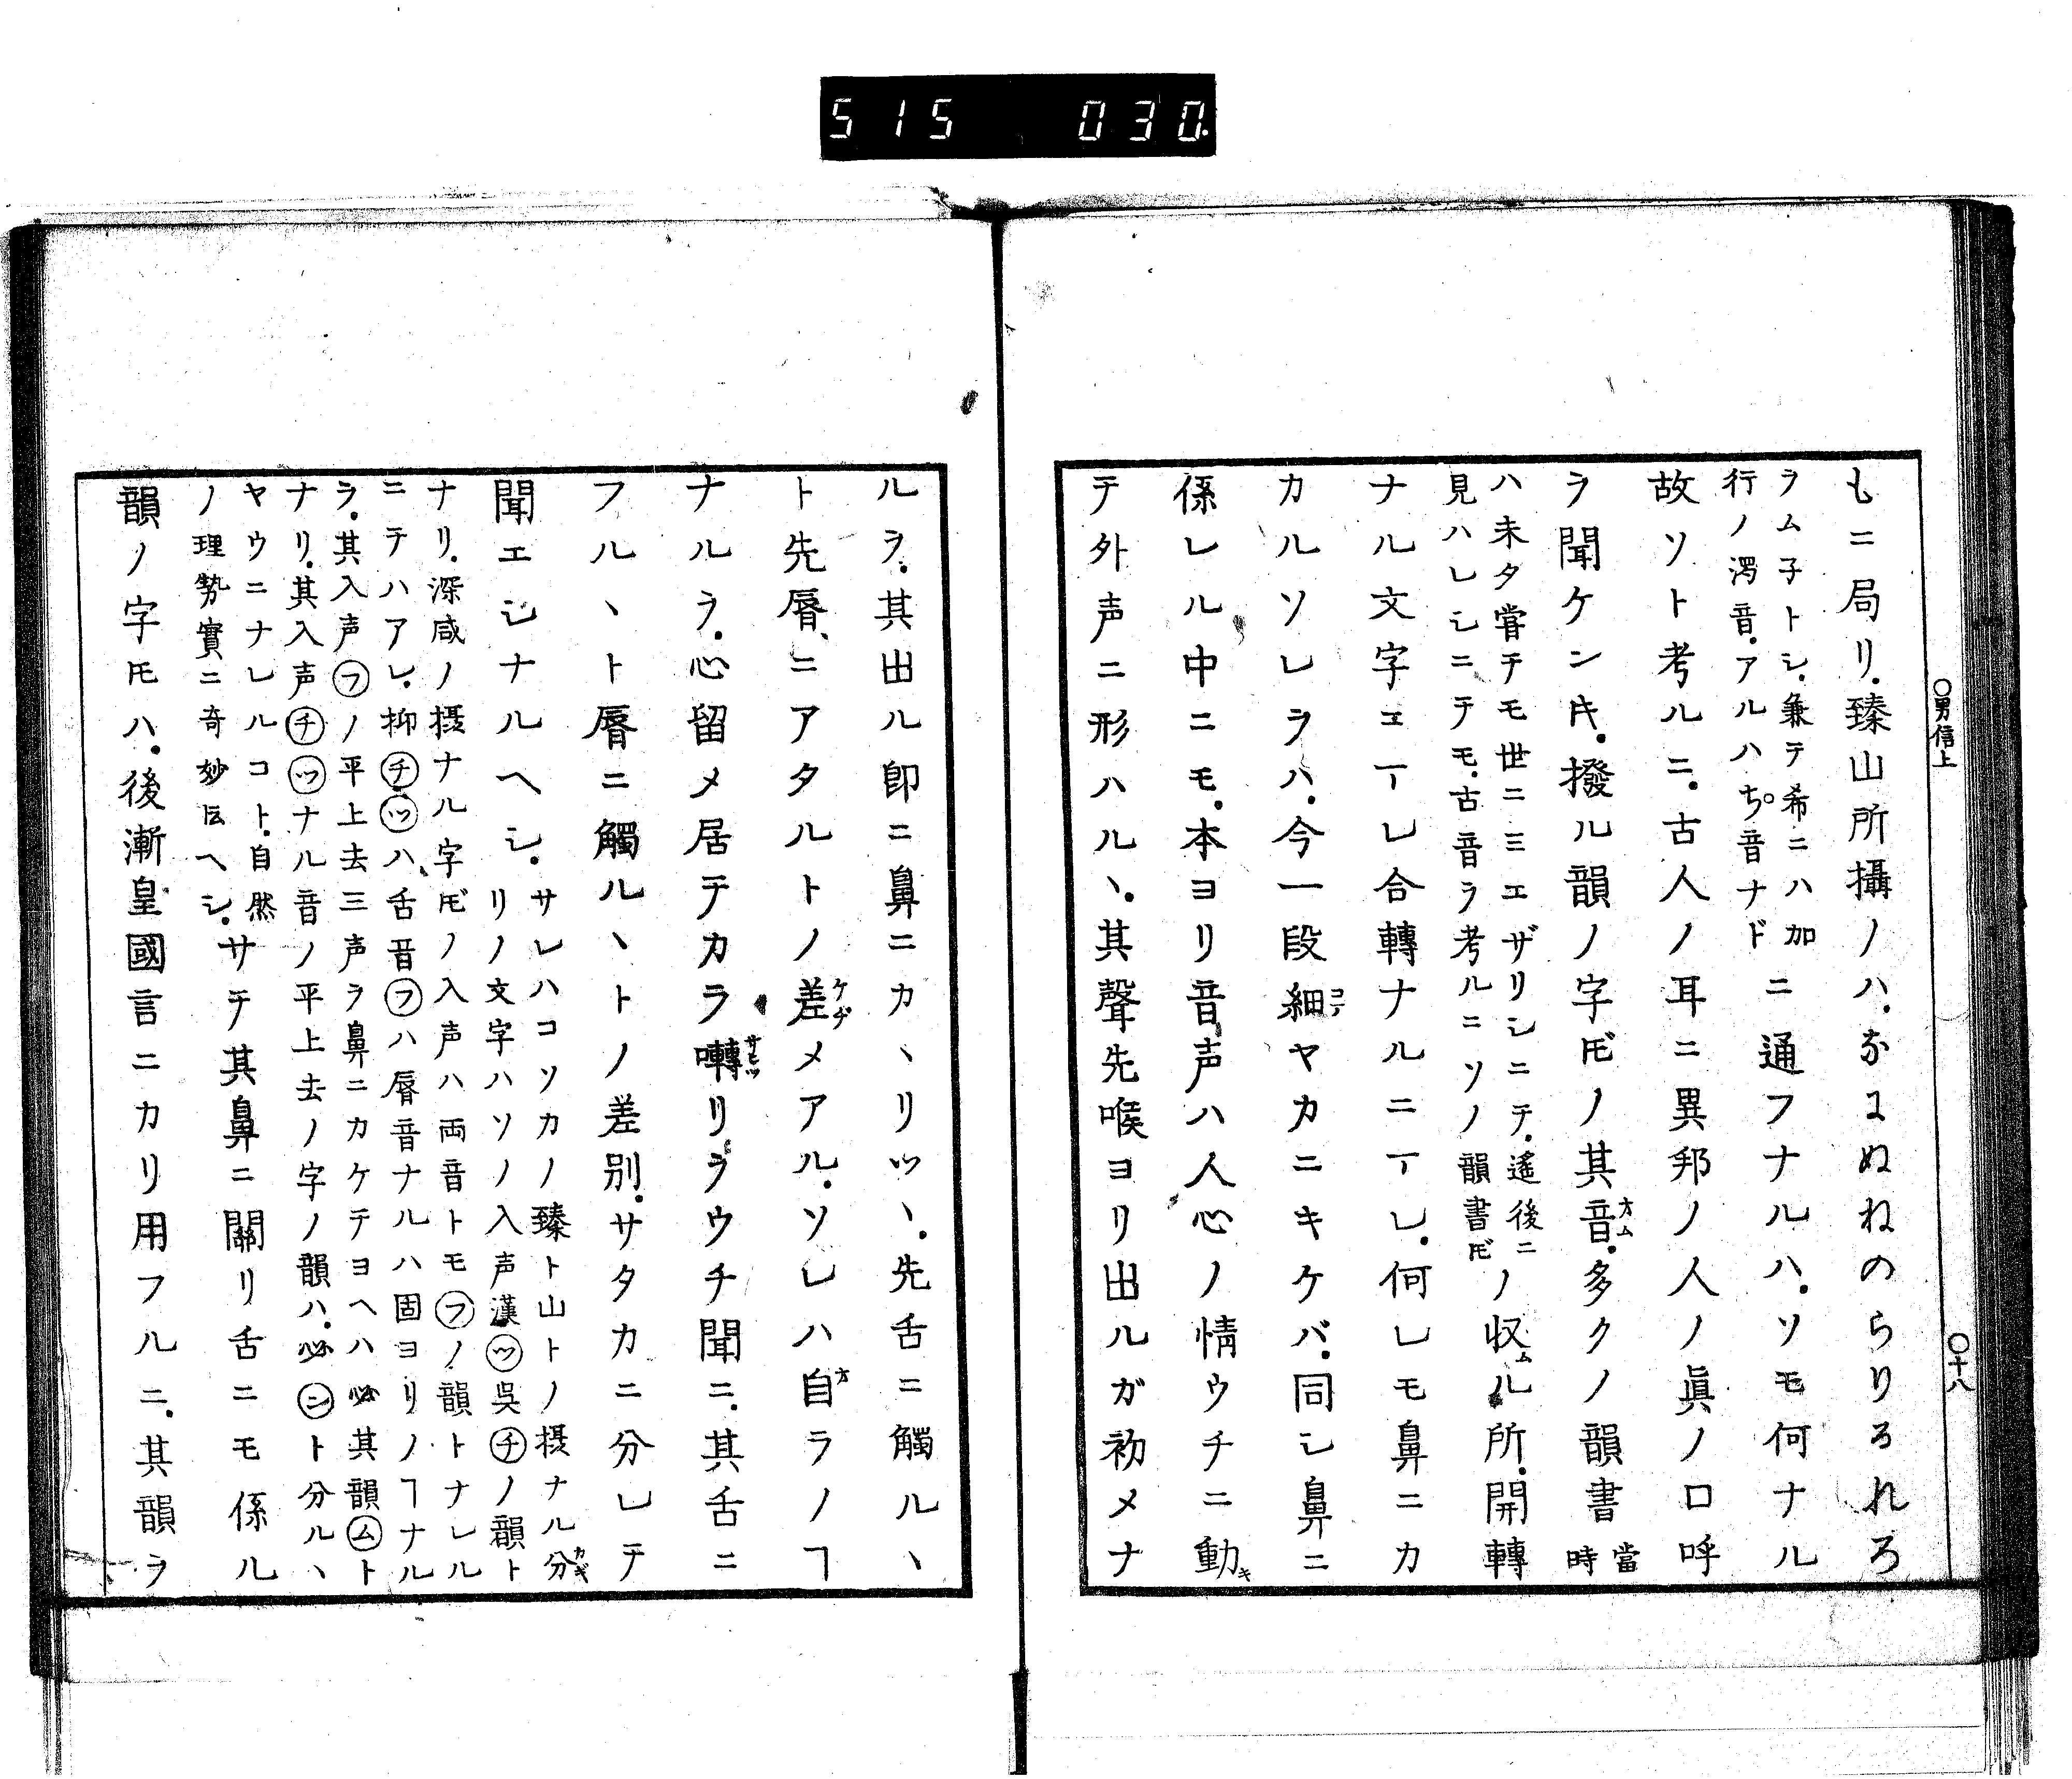 515 030.
○男信上
○十八
もニ局リ.臻山所攝ノハ.なにぬねのらりるれろ
ヲム子トシ.兼テ希ニハ加
行ノ濁音.アルハち゜音ナド
ニ通フナルハ.ソモ何ナル
故ソト考ルニ.古人ノ耳ニ異邦ノ人ノ眞ノ口呼
ヲ聞ケンキ.撥ル韻ノ字𪜈ノ其音オム.多クノ韻書
當
時
ハ未タ嘗テモ世ニミエザリシニテ.遙後ニ
見ハレシニテモ.古音ヲ考ルニソノ韻書𪜈
ノ収ムル所.開轉
ナル文字ヱーレ合轉ナルニーレ.何レモ鼻ニカ
カルソレラハ.今一段細コマヤカニキケバ.同シ鼻ニ
係レル中ニモ.本ヨリ音声ハ人心ノ情ウチニ動キ
テ外声ニ形ハルヽ.其聲先喉ヨリ出ルガ初メナ
ルヲ.其出ル卽ニ鼻ニカヽリツヽ.先舌ニ觸ルヽ
ト先脣ニアタルトノ差ケヂメアル.ソレハ自オラノヿ
ナルヲ.心留メ居テカラ囀サヒツリヲウチ聞ニ.其舌ニ
フルヽト脣ニ觸ルヽトノ差別.サタカニ分レテ
聞エシナルヘシ.
サレハコソカノ臻ト山トノ摂ナル分カギ
リノ文字ハソノ入声漢ツ呉チノ韻ト
ナリ.深咸ノ摂ナル字𪜈ノ入声ハ両音トモフノ韻トナレル
ニテハアレ.抑チツハ舌音フハ脣音ナルハ固ヨリノヿナル
ヲ.其入声フノ平上去三声ヲ鼻ニカケテヨヘハ必其韻ムト
ナリ.其入声チツナル音ノ平上去ノ字ノ韻ハ.必ント分ルヽ
ヤウニナレルコト.自然
ノ理勢實ニ奇妙云ヘシ.
サテ其鼻ニ關リ舌ニモ係ル
韻ノ字𪜈ハ.後漸皇國言ニカリ用フルニ.其韻ヲ